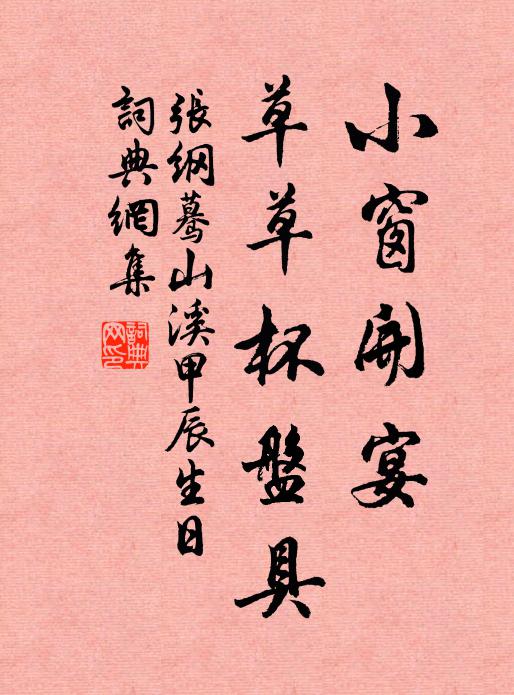 小窗開宴
草草杯盤具
張綱驀山溪甲辰生日
詞典網集
詞典網印